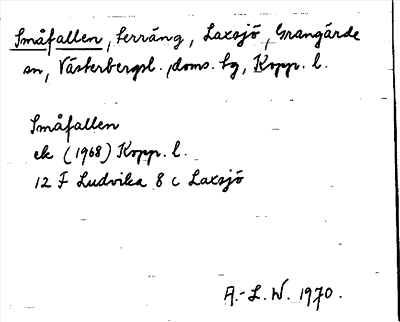 Småfallen, terräng, Laxsjö, Grangärde
sn, Västerbergsl. doms. tg, Kopp. l.
Småfallen
ek (1968) Kopp. l.
12 F Ludvika 8 c Laxsjö
A.-L. W. 1970.